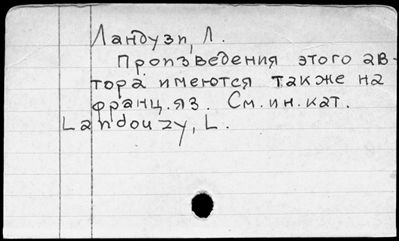 Ландузи, Л.
Произведения этого ав-
тора имеются также на
франц. яз. См. ин. кат.
Landouzy, L.